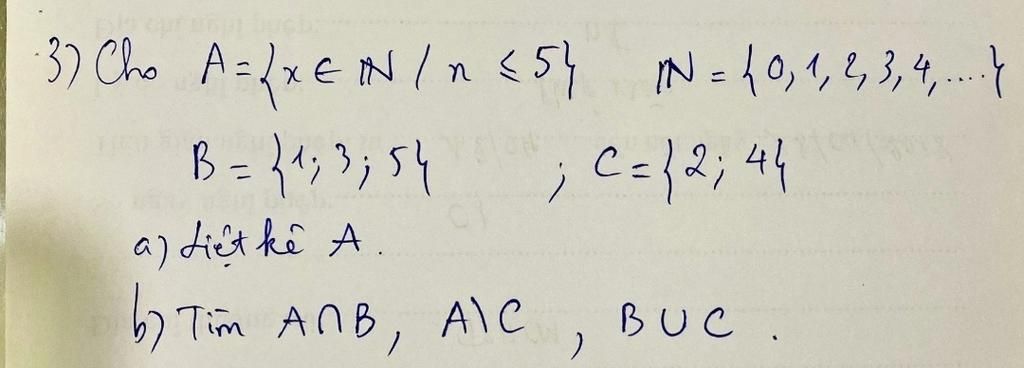 3) Cho A = {x ∈ ℕ / n ≤ 5} ℕ = {0, 1, 2, 3, 4, ....}
B = {1; 3; 5} ; C = {2; 4}
a) Liệt kê A.
b) Tìm A∩B, A\C, B∪C.